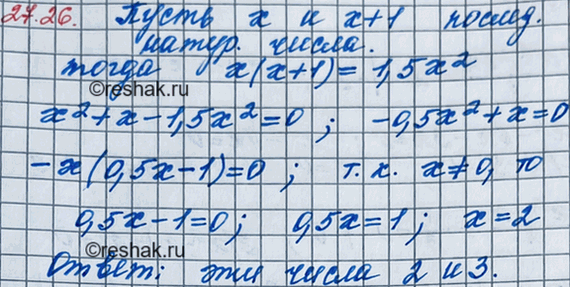 27.26. Пусть x и x+1 послед.
натур. числа.
тогда x(x+1) = 1,5x²
©reshak.ru
x² + x - 1,5x² = 0 ; -0,5x² + x = 0
-x(0,5x-1) = 0 ; т.к. x≠0, то
0,5x-1=0; 0,5x=1; x=2
©reshak.ru
Ответ: эти числа 2 и 3.